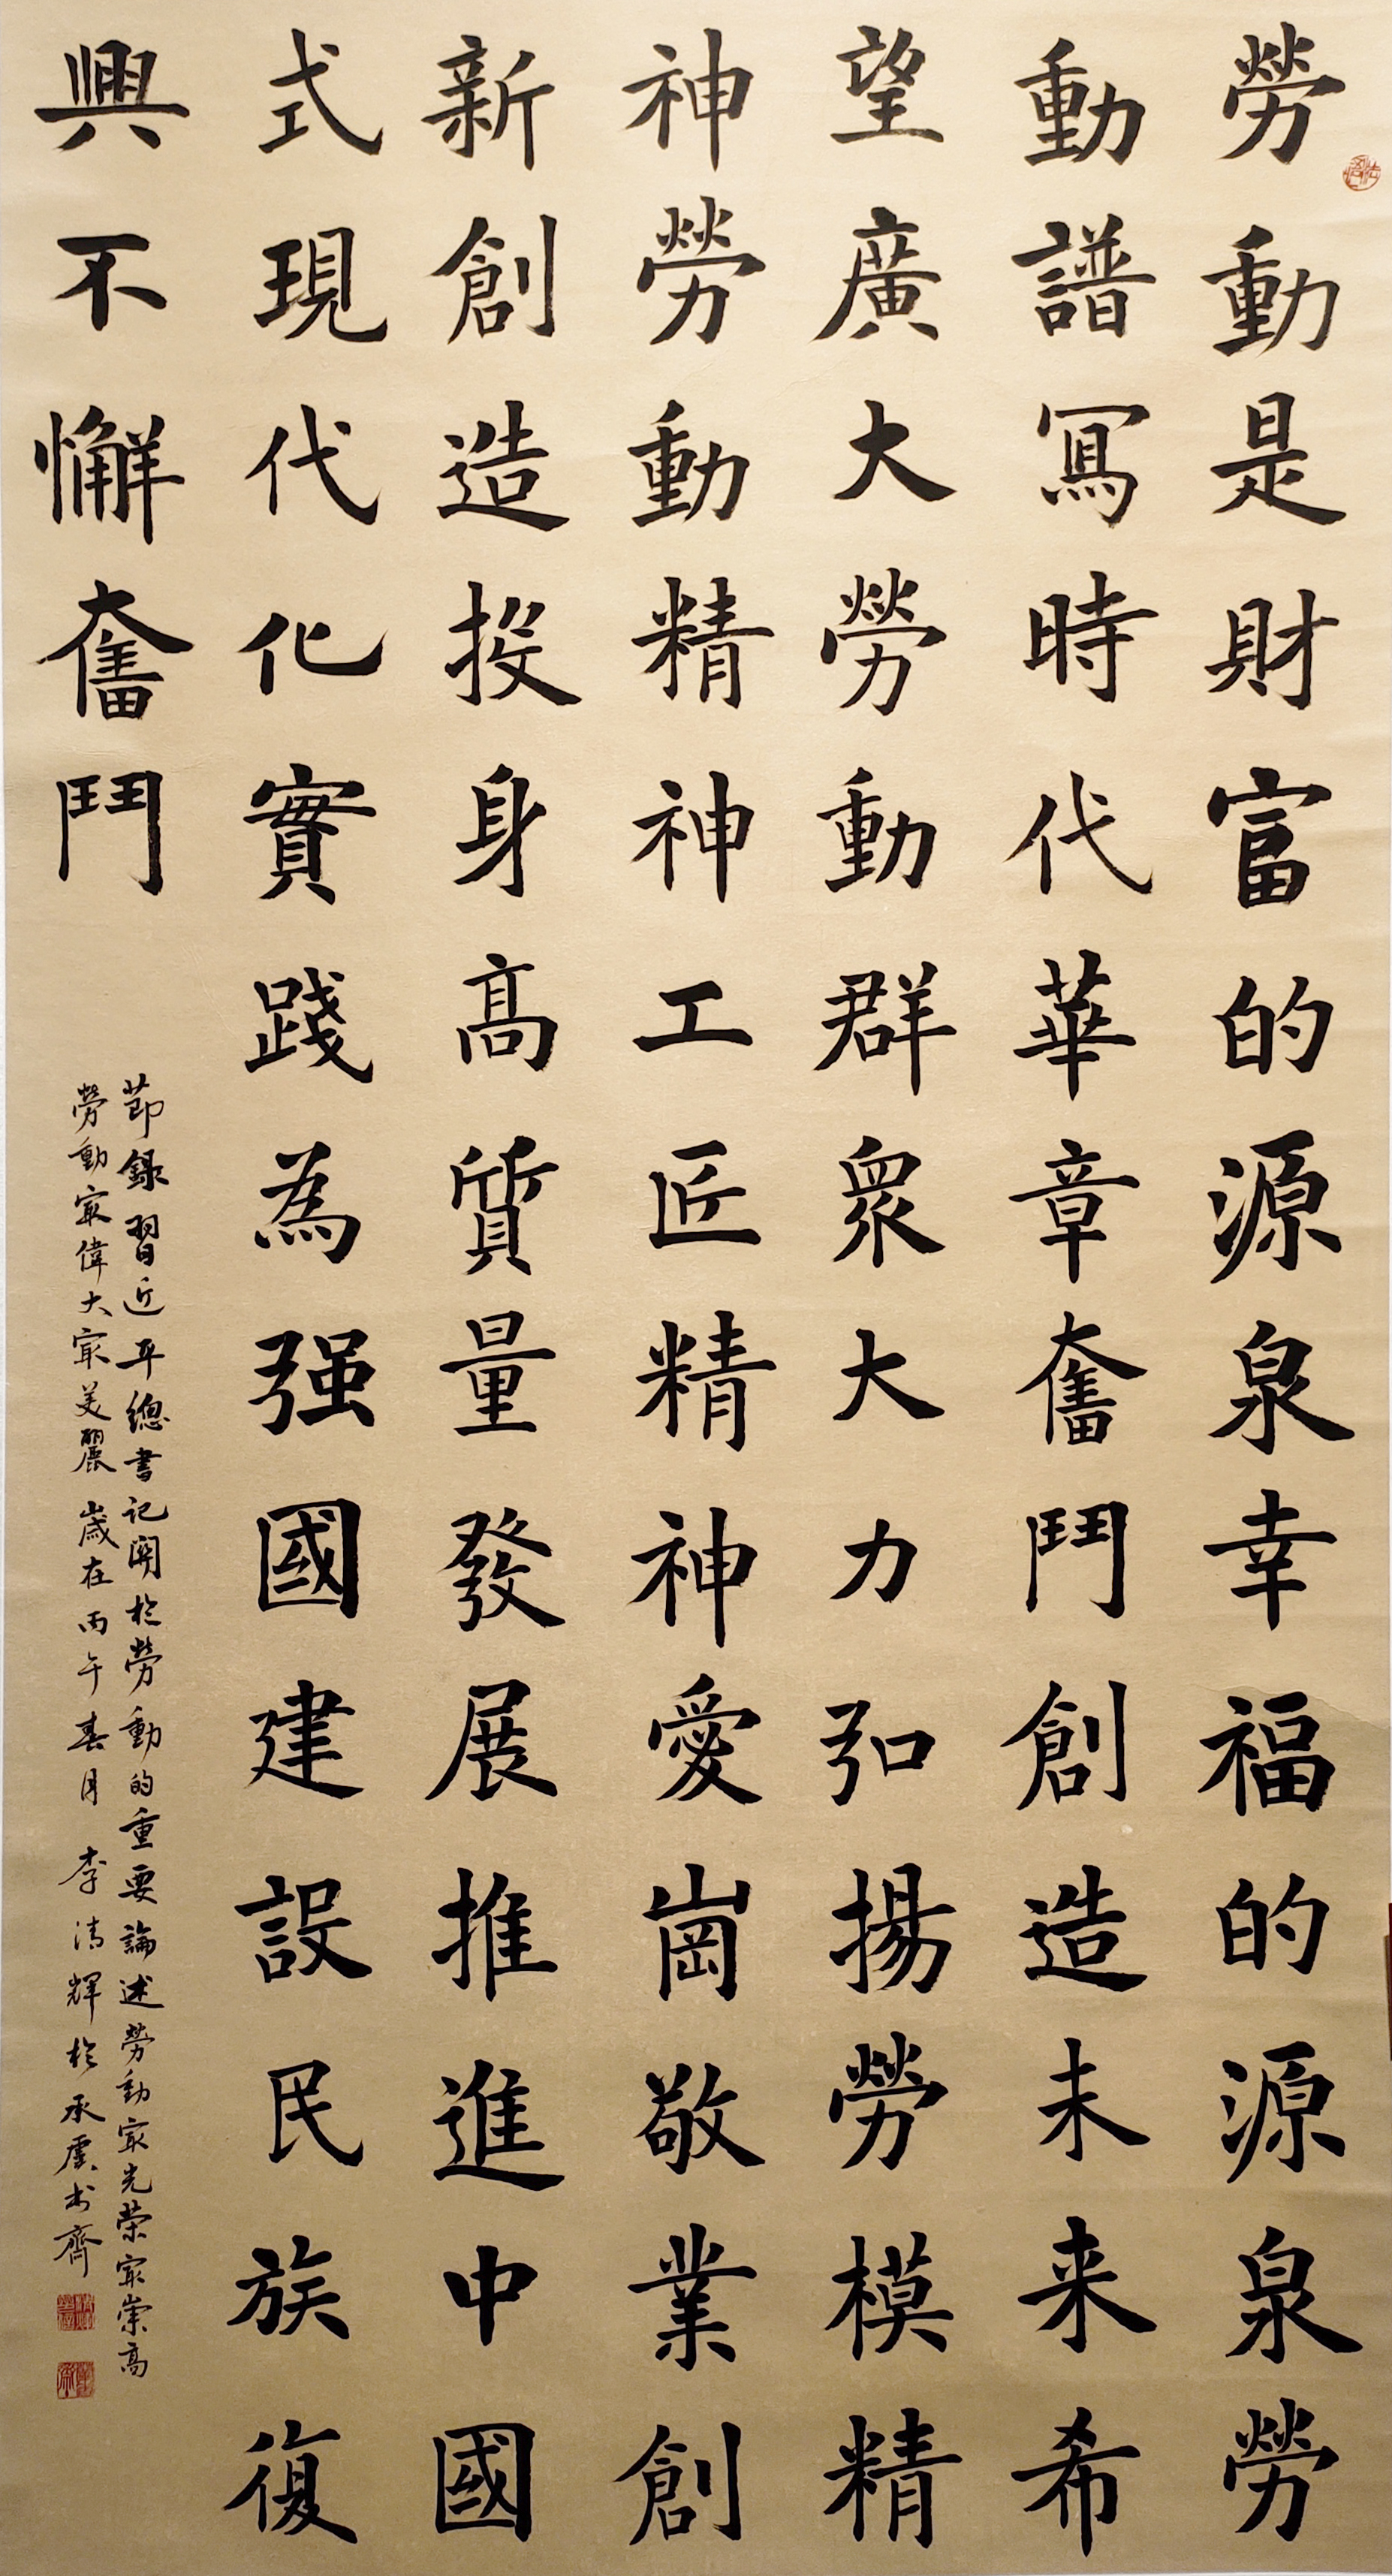 勞動是財富的源泉幸福的源泉勞
動譜寫時代華章奮鬥創造未来希
望廣大勞動群衆大力弘揚勞模精
神勞動精神工匠精神愛崗敬業創
新創造投身高質量發展推進中國
式現代化實踐為强國建設民族復
興不懈奮鬥
節錄習近平總書記關於勞動的重要論述勞動寂光榮寂崇高
勞動寂偉大寂美麗 歲在丙午春月 李清輝於承虞書齋